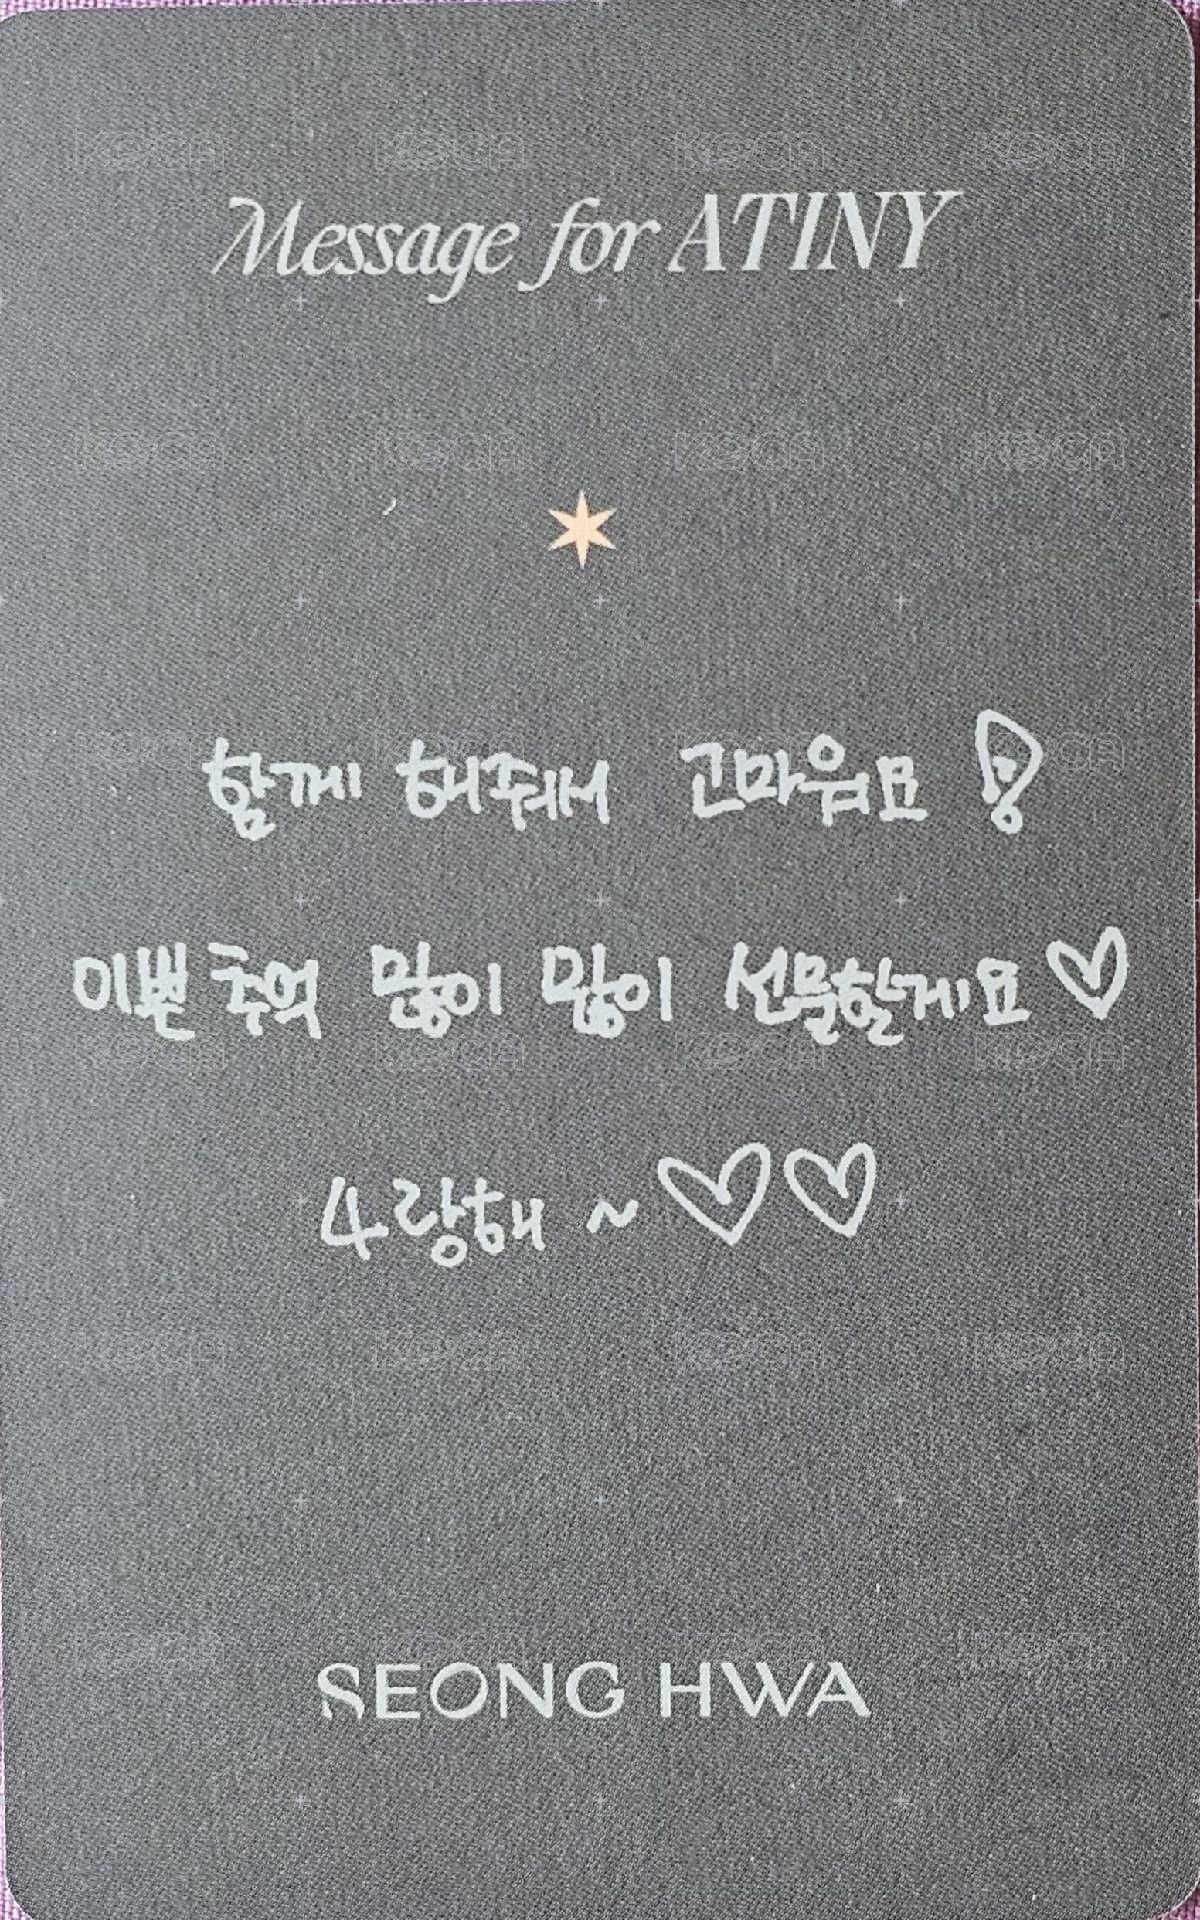 Message for ATINY
함께 해줘서 고마워요!
이쁜 추억 많이 많이 선물할게요♡
4랑해 ~♡♡
SEONG HWA